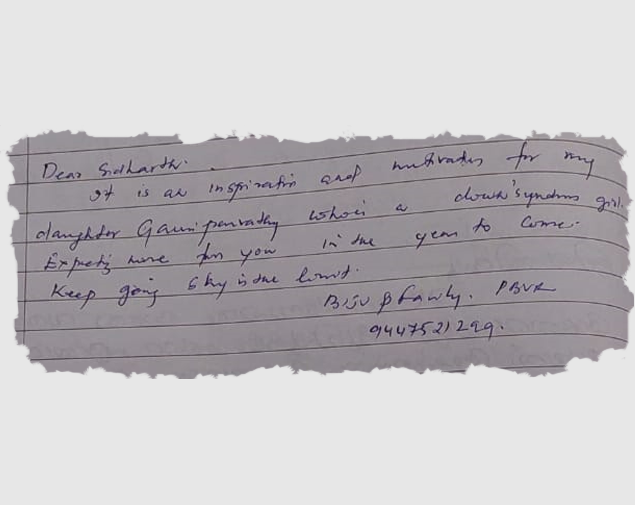 Dear Sidharth.
It is an inspiration and motivation for my
daughter Gauriparvathy who is a down's syndrome girl.
Expecting more from you in the year to come.
Keep going sky is the limit.
Biju & family. PBVR
9447521299.